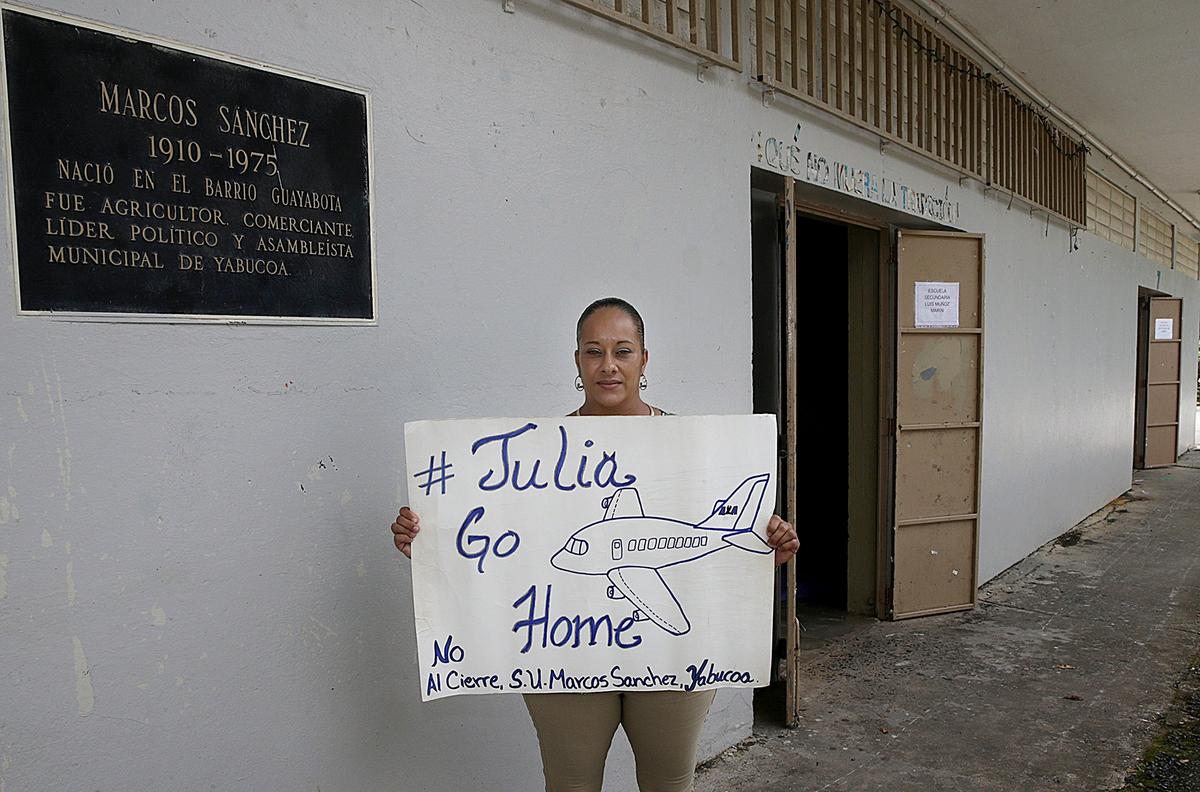 MARCOS SÁNCHEZ
1910 - 1975
NACIÓ EN EL BARRIO GUAYABOTA
FUE AGRICULTOR, COMERCIANTE,
LÍDER POLÍTICO Y ASAMBLEÍSTA
MUNICIPAL DE YABUCOA.
¡QUÉ NO MUERA LA TRADICIÓN!
ESCUELA
SECUNDARIA
LUIS MUÑOZ
MARIN
# Julia
Go
AXA
Home
No
Al Cierre, S.U. Marcos Sanchez, Yabucoa.